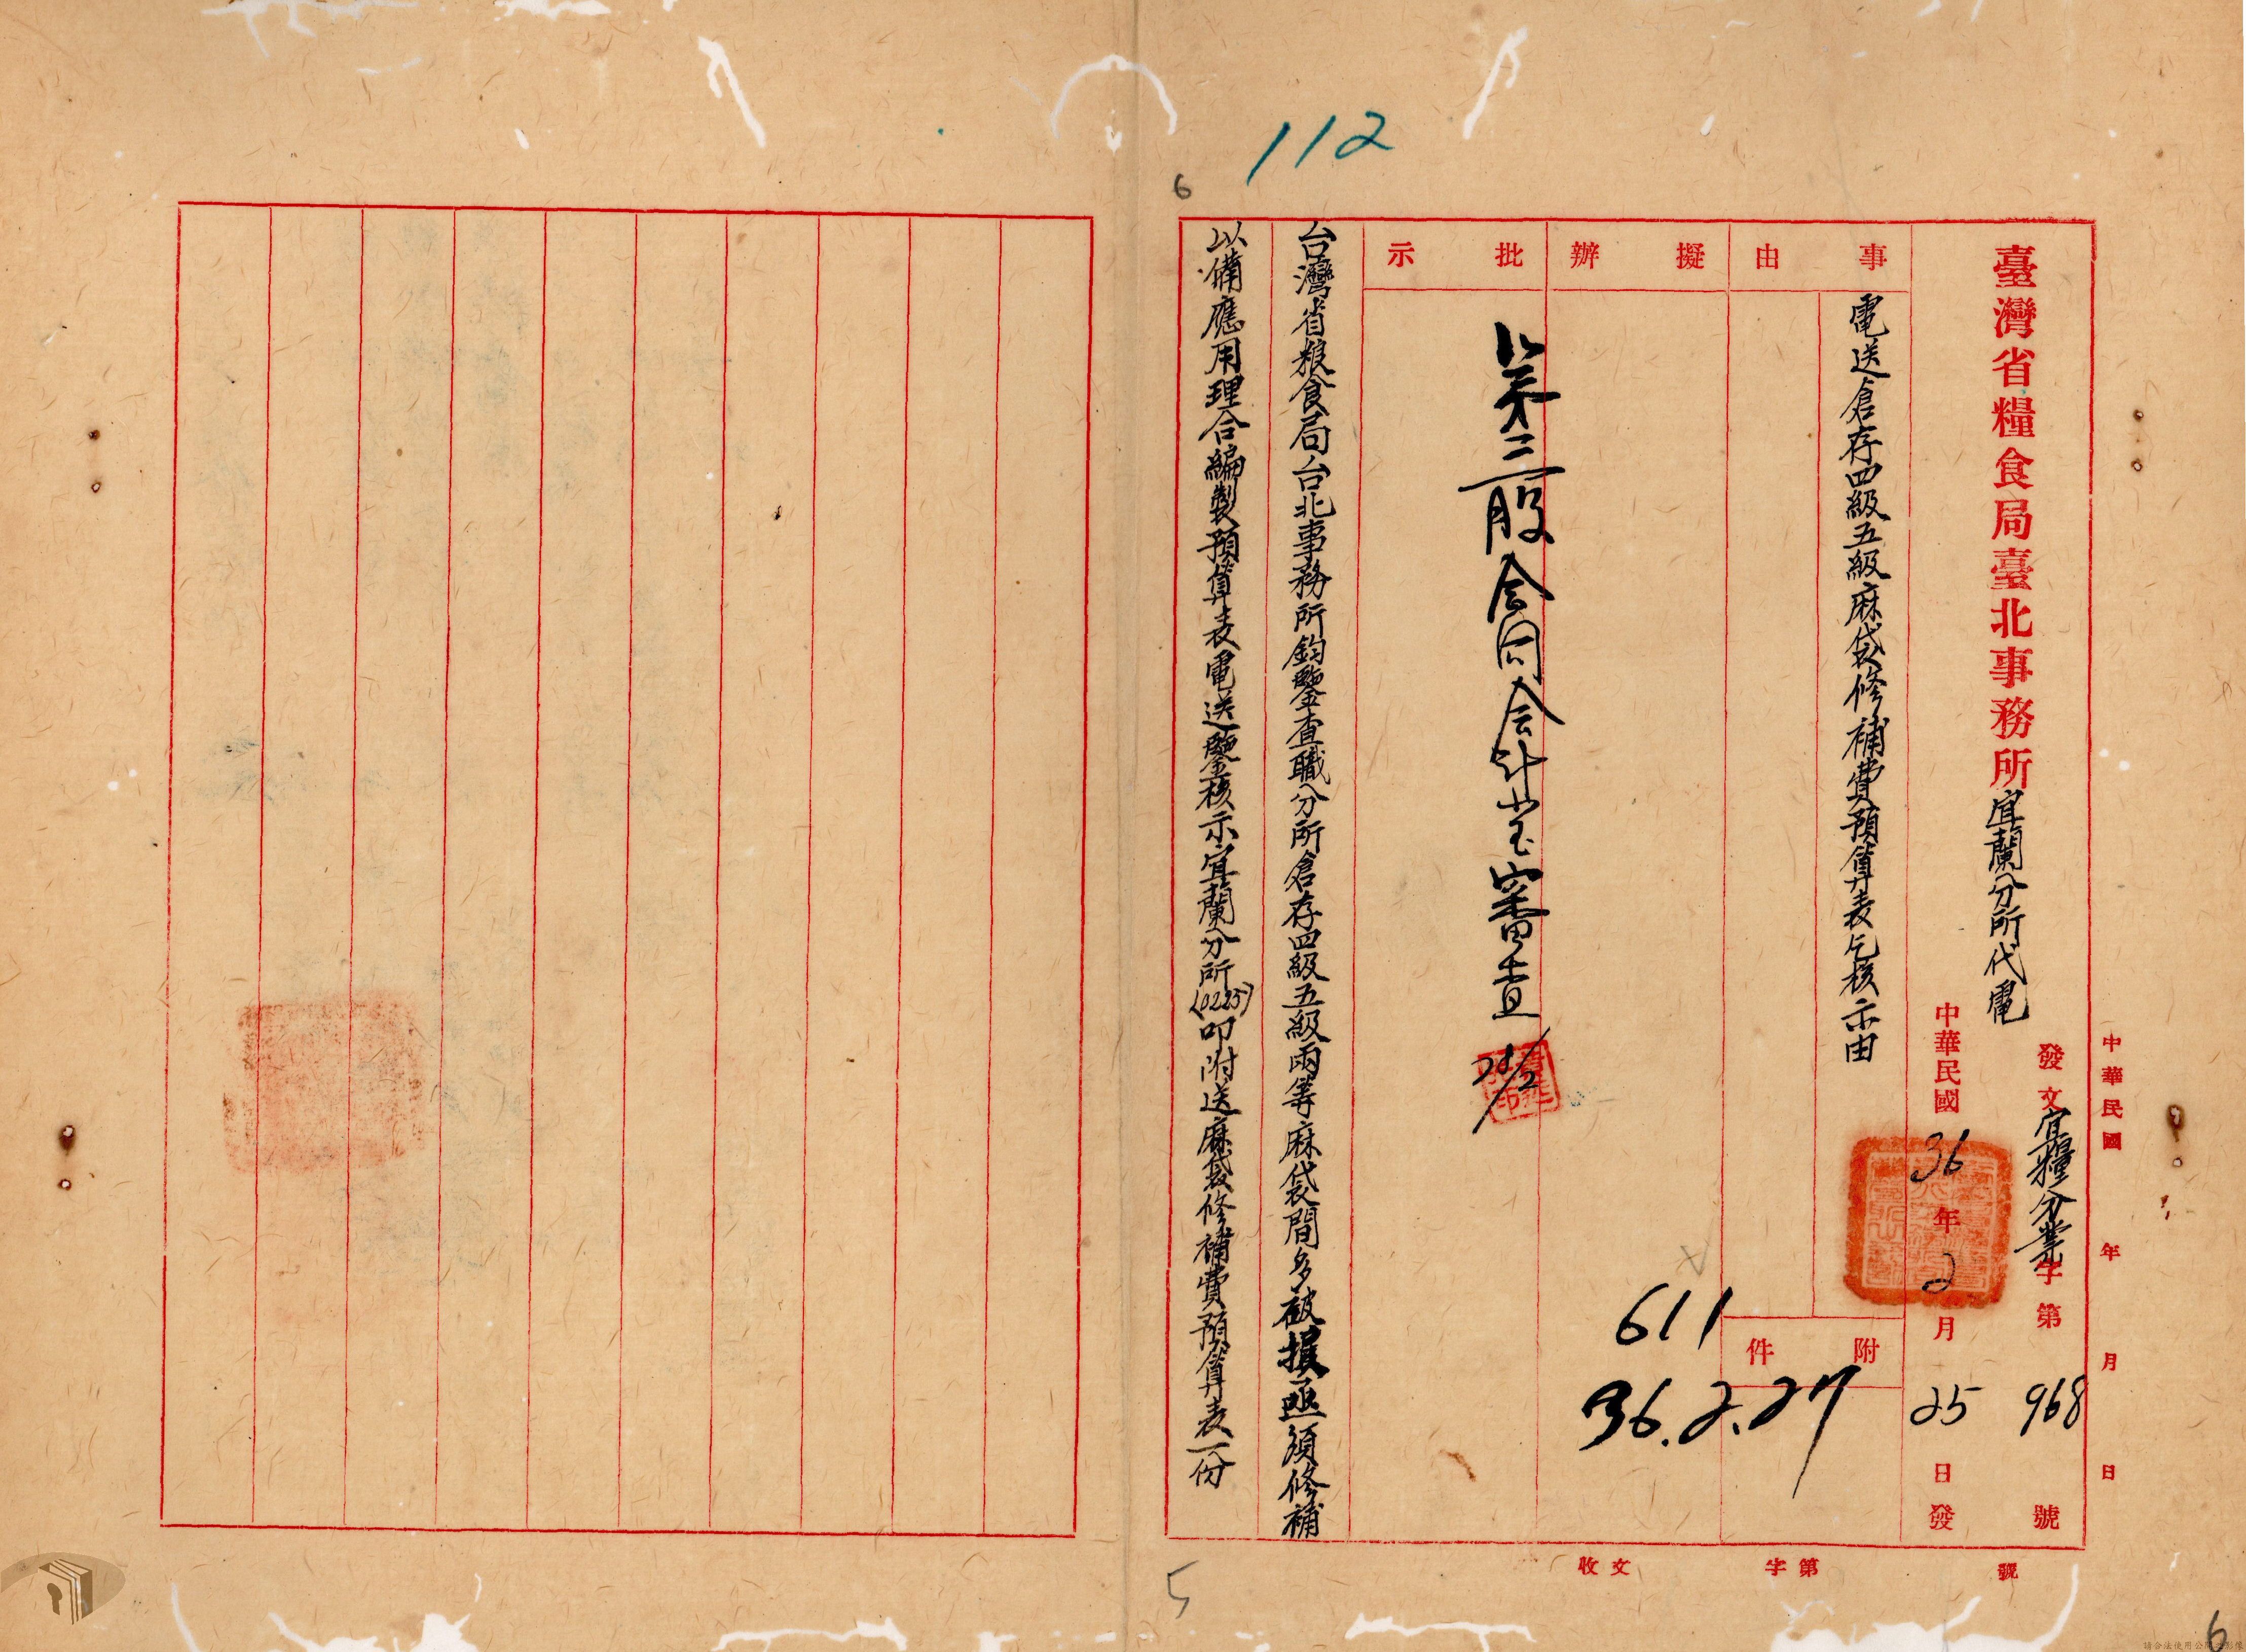 112
6
中華民國 年 月 日
發文宜糧分業字第968號
臺灣省糧食局臺北事務所宜蘭分所代電
中華民國36年2月25日發
事由
電送倉存四級五級麻袋修補費預算表乞核示由
附件
擬辦
611
36.2.27
批示
第三股会同会計室審查
台灣省粮食局台北事務所鈞鑒查職分所倉存四級五級兩等麻袋間多被損亟須修補
以備應用理合編製預算表電送鑒核示宜蘭分所(0225)叩附送麻袋修補費預算表一份
收文 字第 號
5
6